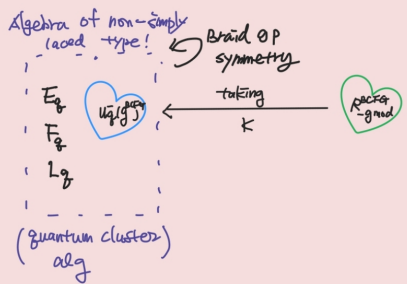 Algebra of non-simply
laced type!
Braid gp
symmetry
E_q
F_q
L_q
U_q^-(g^{BCFG})
taking
K
R^{BCFG}
-gmod
(quantum cluster)
alg